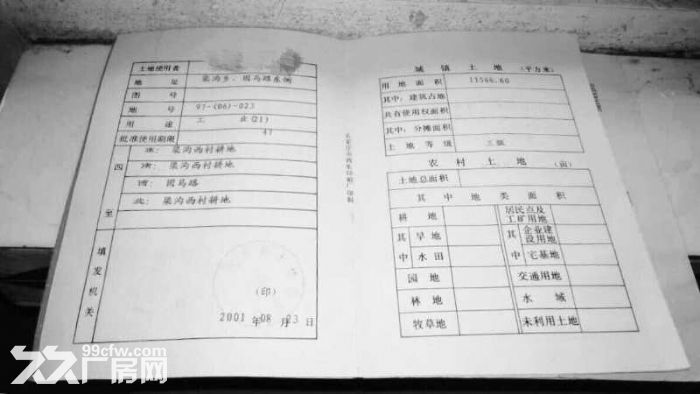 土地使用者
地 址 梁沟乡、因马路东侧
图 号
地 号 97-(06)-023
用 途 工 业(21)
批准使用期限 47
四至
东: 梁沟西村耕地
南: 梁沟西村耕地
西: 因马路
北: 梁沟西村耕地
填发机关
(印)
2001 年 08 月 23 日
城 镇 土 地 (平方米)
用 地 面 积 11566.60
其中: 建筑占地
共有使用权面积
其中: 分摊面积
土 地 等 级 三级
农 村 土 地 (亩)
土地总面积
其 中 地 类 面 积
耕 地 居民点及工矿用地
其中 旱 地 其中 企业建设用地
水 田 宅基地
园 地 交通用地
林 地 水 域
牧草地 未利用土地
99cfw.com
厂房网